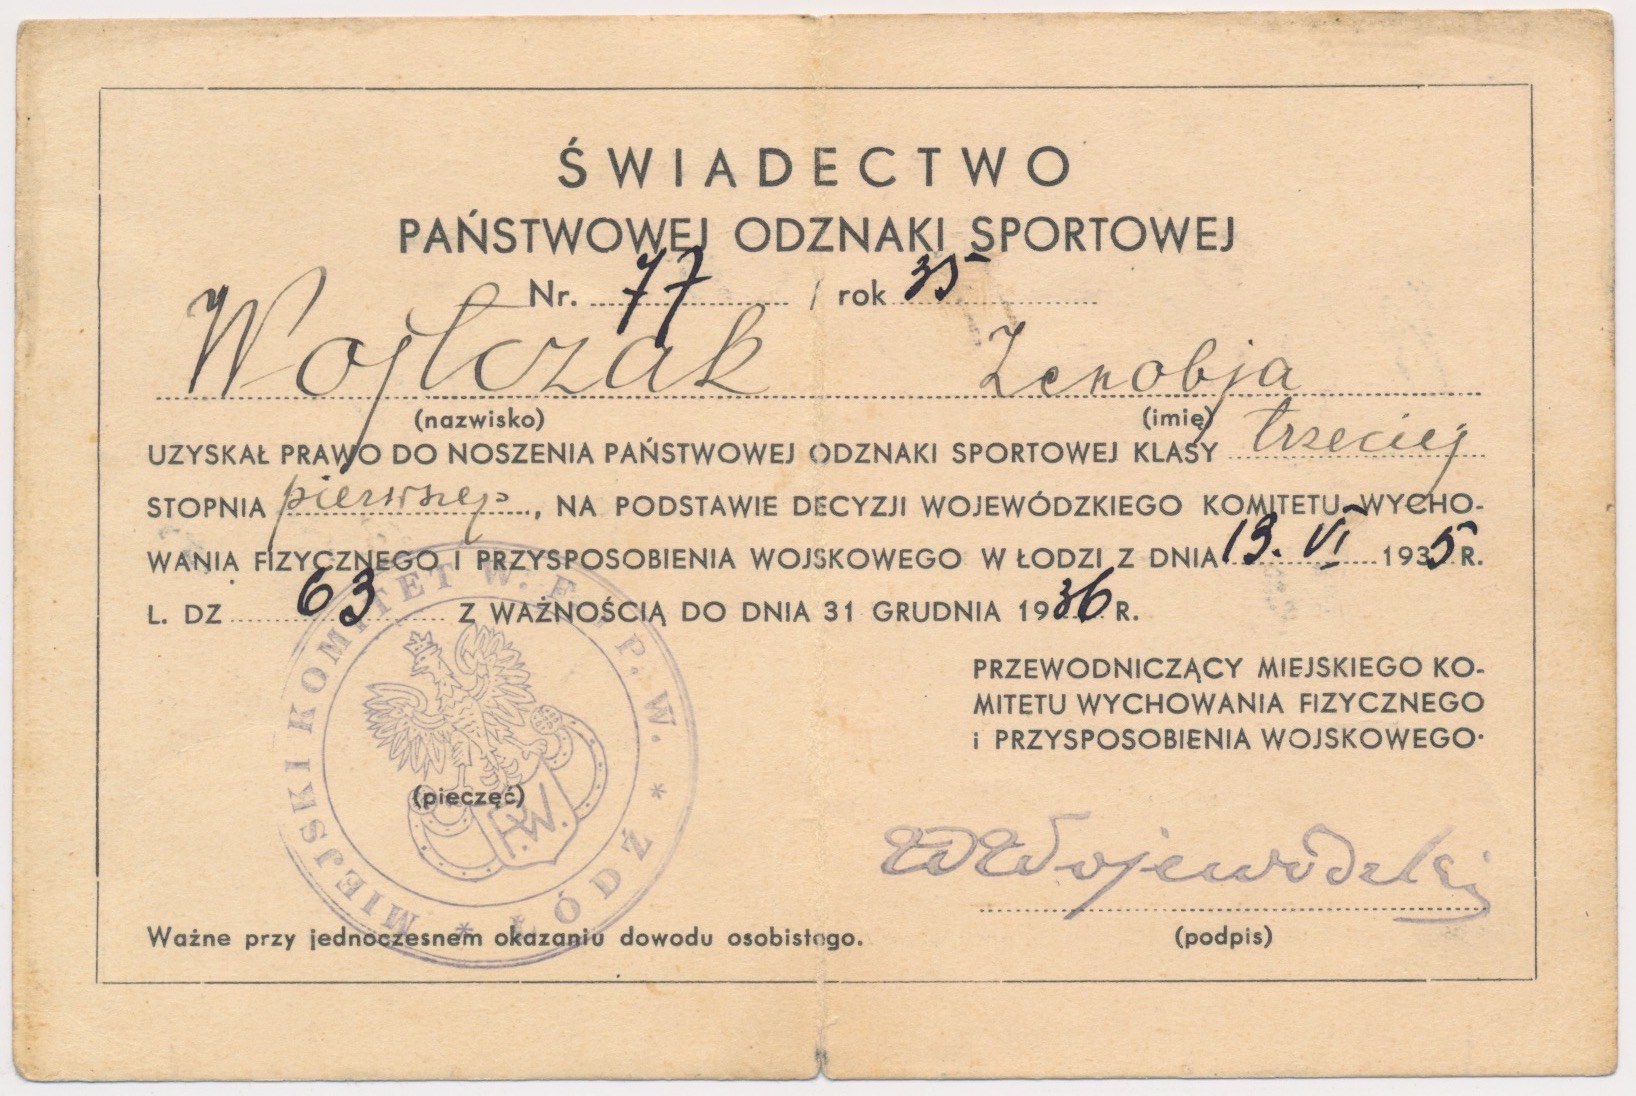 ŚWIADECTWO
PAŃSTWOWEJ ODZNAKI SPORTOWEJ
Nr. 77 / rok 35
Wojtczak Zenobja
(nazwisko) (imię)
UZYSKAŁ PRAWO DO NOSZENIA PAŃSTWOWEJ ODZNAKI SPORTOWEJ KLASY trzeciej
STOPNIA pierwszego, NA PODSTAWIE DECYZJI WOJEWÓDZKIEGO KOMITETU WYCHO-
WANIA FIZYCZNEGO I PRZYSPOSOBIENIA WOJSKOWEGO W ŁODZI Z DNIA 13. VI 1935 R.
L. DZ 63 Z WAŻNOŚCIĄ DO DNIA 31 GRUDNIA 1936 R.
PRZEWODNICZĄCY MIEJSKIEGO KO-
MITETU WYCHOWANIA FIZYCZNEGO
i PRZYSPOSOBIENIA WOJSKOWEGO·
MIEJSKI KOMITET W. F. i P. W. * ŁÓDŹ *
F.W.
(pieczęć)
Wojewódzki
Ważne przy jednoczesnem okazaniu dowodu osobistego.
(podpis)